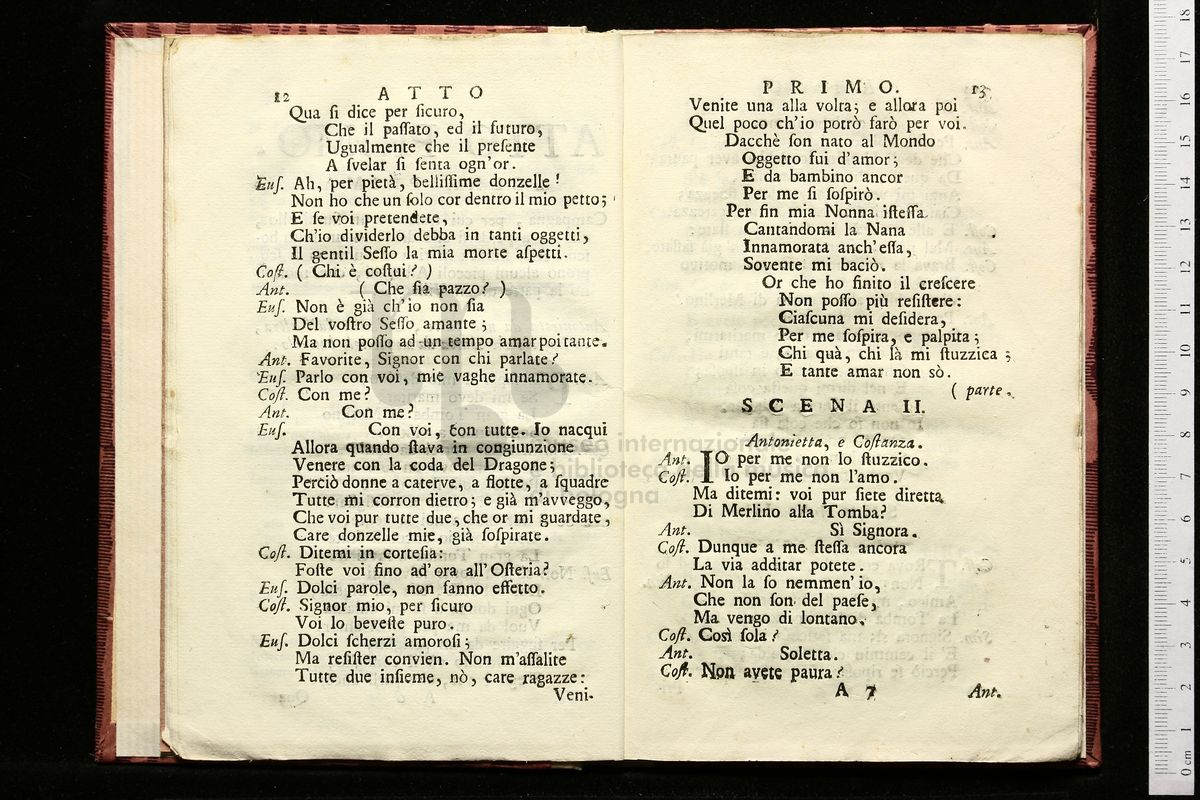 12 ATTO
Qua ſi dice per ſicuro,
Che il paſſato, ed il futuro,
Ugualmente che il preſente
A ſvelar ſi ſenta ogn'or.
Euſ. Ah, per pietà, belliſſime donzelle!
Non ho che un ſolo cor dentro il mio petto;
E ſe voi pretendete,
Ch'io dividerlo debba in tanti oggetti,
Il gentil Seſſo la mia morte aſpetti.
Coſt. ( Chi è coſtui? )
Ant. ( Che ſia pazzo? )
Euſ. Non è già ch'io non ſia
Del voſtro Seſſo amante;
Ma non poſſo ad un tempo amar poi tante.
Ant. Favorite, Signor con chi parlate?
Euſ. Parlo con voi, mie vaghe innamorate.
Coſt. Con me?
Ant. Con me?
Euſ. Con voi, con tutte. Io nacqui
Allora quando ſtava in congiunzione
Venere con la coda del Dragone;
Perciò donne a caterve, a flotte, a ſquadre
Tutte mi corron dietro; e già m'avveggo,
Che voi pur tutte due, che or mi guardate,
Care donzelle mie, già ſoſpirate.
Coſt. Ditemi in corteſia:
Foſte voi ſino ad'ora all'Oſteria?
Euſ. Dolci parole, non fanno effetto.
Coſt. Signor mio, per ſicuro
Voi lo beveſte puro.
Euſ. Dolci ſcherzi amoroſi;
Ma reſiſter convien. Non m'aſſalite
Tutte due inſieme, nò, care ragazze:
Veni.
PRIMO. 13
Venite una alla volta; e allora poi
Quel poco ch'io potrò farò per voi.
Dacchè ſon nato al Mondo
Oggetto fui d'amor;
E da bambino ancor
Per me ſi ſoſpirò.
Per fin mia Nonna iſteſſa
Cantandomi la Nana
Innamorata anch'eſſa,
Sovente mi baciò.
Or che ho finito il creſcere
Non poſſo più reſiſtere:
Ciaſcuna mi deſidera,
Per me ſoſpira, e palpita;
Chi quà, chi là mi ſtuzzica;
E tante amar non sò.
( parte.
SCENA II.
Antonietta, e Coſtanza.
Ant. IO per me non lo ſtuzzico.
Coſt. Io per me non l'amo.
Ma ditemi: voi pur ſiete diretta
Di Merlino alla Tomba?
Ant. Sì Signora.
Coſt. Dunque a me ſteſſa ancora
La via additar potete.
Ant. Non la ſo nemmen' io,
Che non ſon del paeſe,
Ma vengo di lontano.
Coſt. Così ſola?
Ant. Soletta.
Coſt. Non avete paura?
A 7 Ant.